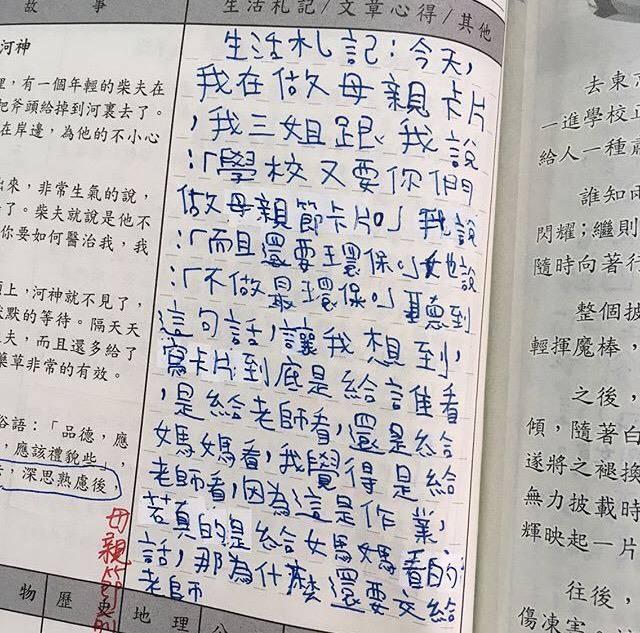 故 事
河神
裡，有一個年輕的柴夫在
把斧頭給掉到河裏去了。
在岸邊，為他的不小心
出來，非常生氣的說，
了。柴夫就說是他不
你要如何醫治我，我
頭上，河神就不見了，
默默的等待。隔天天
夫，而且還多給了
藥草非常的有效。
俗語：「品德，應
，應該禮貌些，
；深思熟慮後
母親節的
生活札記/文章心得/其他
生活札記：今天，
我在做母親卡片
，我三姐跟我說
：「學校又要你們
做母親節卡片。」我說
：「而且還要環保。」她說
：「不做最環保。」聽到
這句話，讓我想到，
寫卡片到底是給誰看
，是給老師看，還是給
媽媽看，我覺得是給
老師看，因為這是作業，
若真的是給媽媽看的
話，那為什麼還要交給
老師
物 歷史 地理 公
去東
一進學校正
給人一種
誰知
閃耀；繼則
隨時向著行
整個披
輕揮魔棒，
之後，
傾，隨著白
遂將之褪換
無力披載時
輝映起一片
往後，
傷凍害。